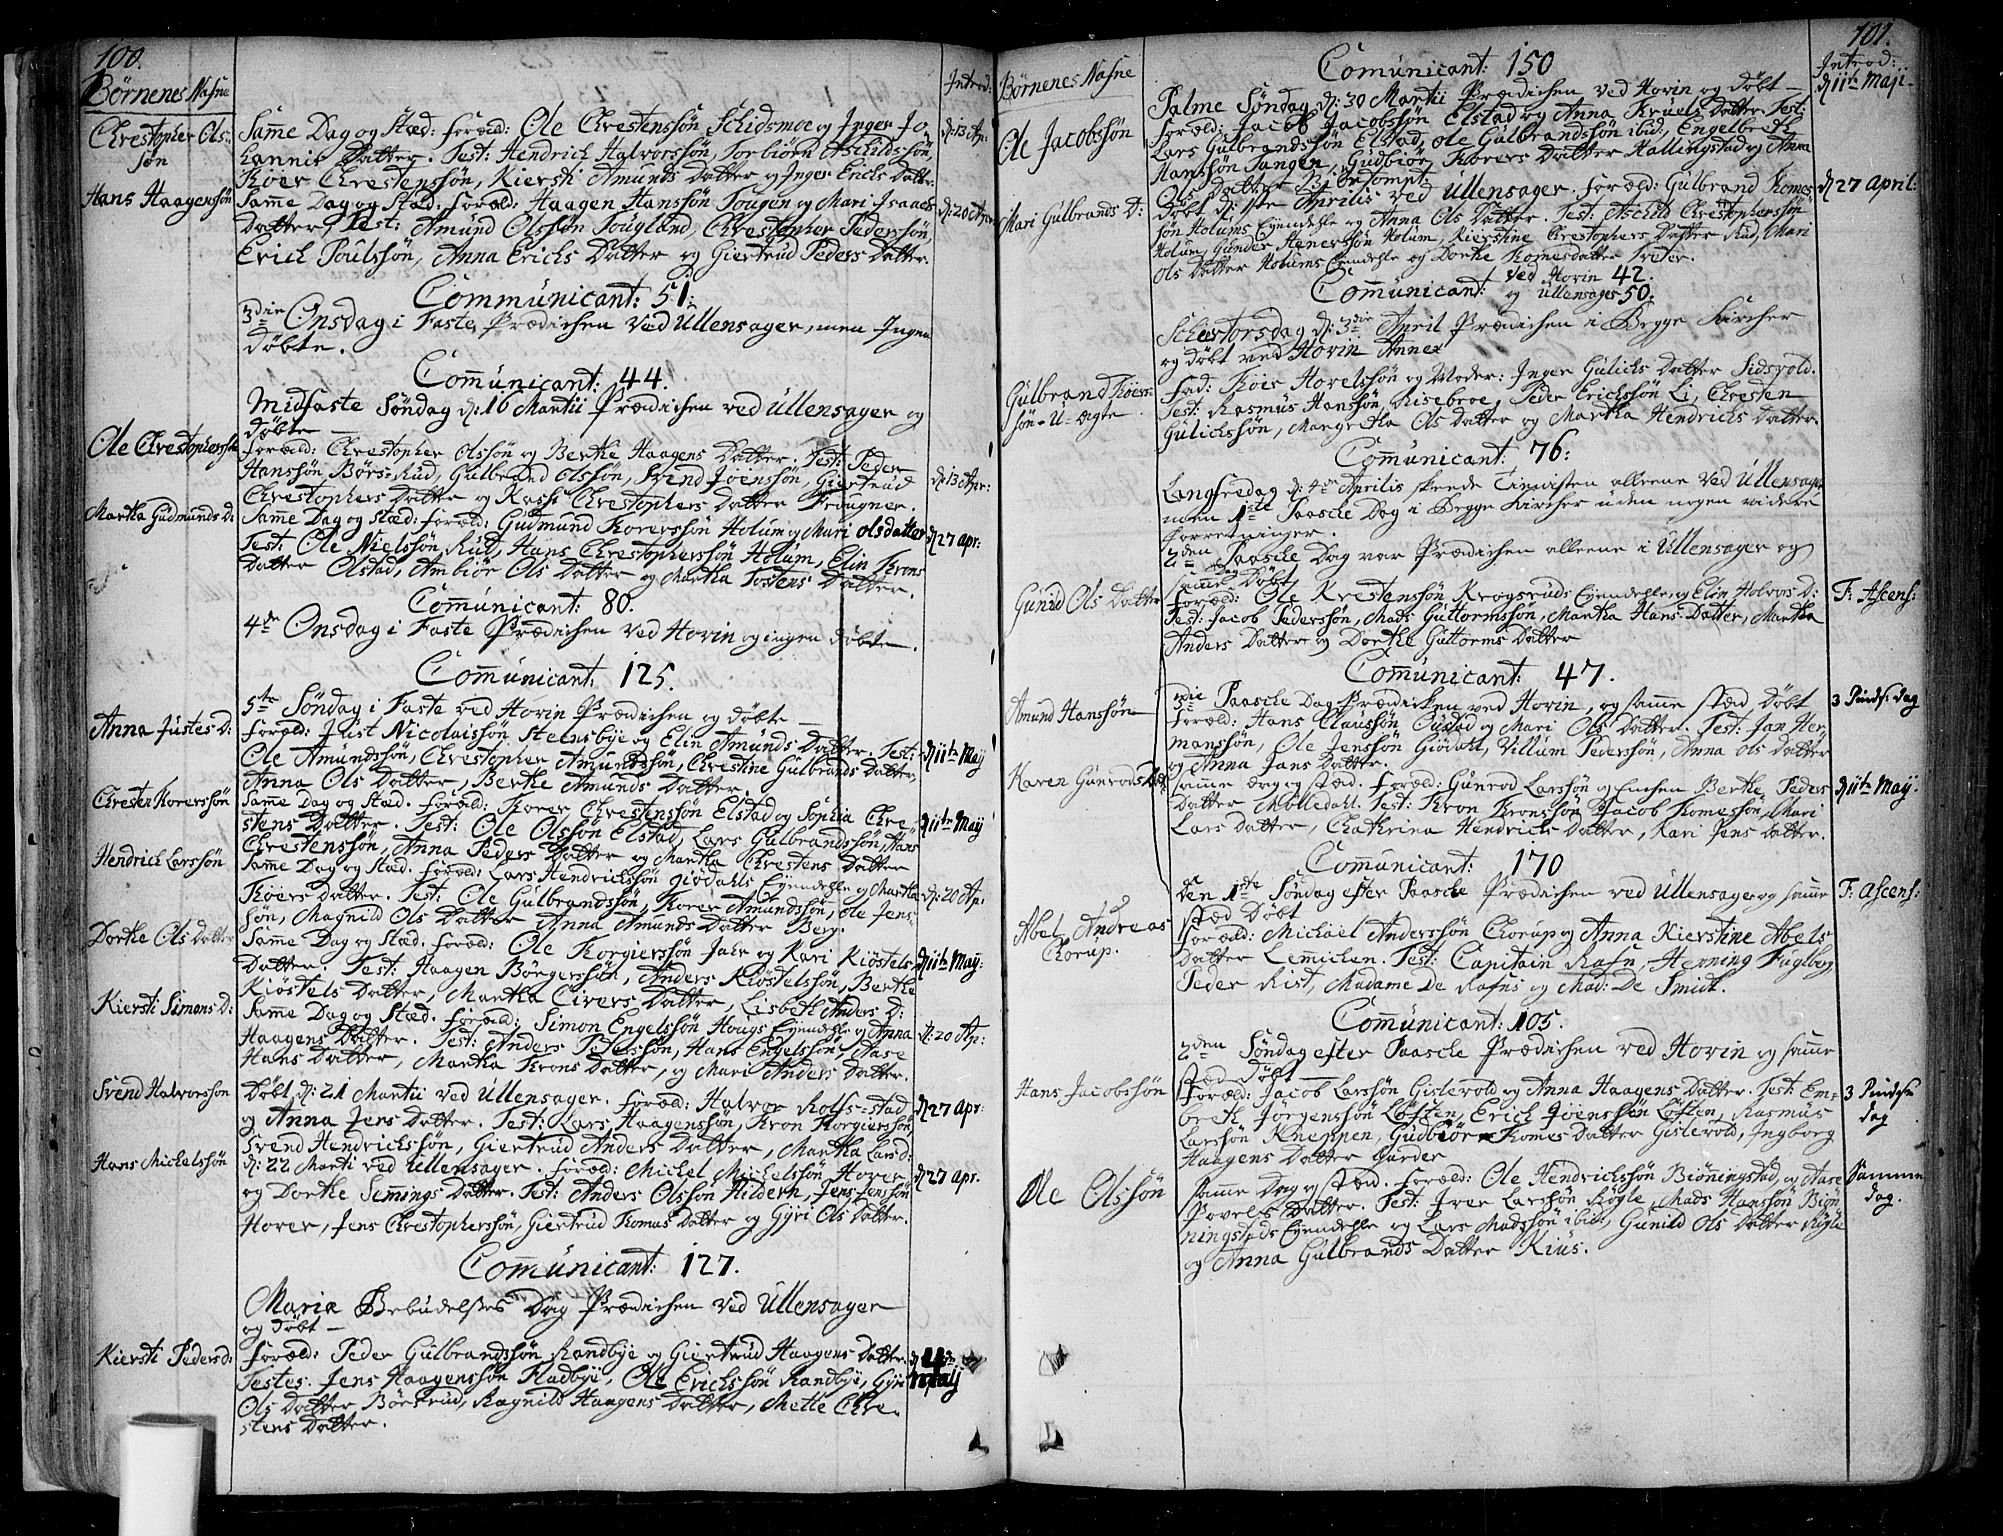 100.
Børnenes Nafne
Introd:
Chrestopher Ols-
søn
Samme Dag og Stæd: Foræld: Ole Chrestenssøn Schidsmoe og Inger Jo
hannis Datter. Test: Hendrich Halvorssøn, Torbiørn Aschildssøn,
Thøer Chrestenssøn, Kiersti Amunds Datter og Inger Erichs Datter.
d: 13 Apr.
Hans Haagenssøn
Samme Dag og Stæd. Foræld: Haagen Hanssøn Tougen og Mari Isaachs
Datter. Test: Amund Olssøn Fougland, Chrestopher Pederssøn,
Erich Poulssøn, Anna Erichs Datter og Giertrud Peders Datter.
d: 20 Apr
Communicant: 51:
3die Onsdag i Faste Prædichen ved Ullensager, men Ingen
døbte.
Comunicant: 44.
Midfaste Søndag d: 16 Martii Prædichen ved Ullensager og
døbte —
Ole Chrestopherssøn
Foræld: Chrestopher Olssøn og Berthe Haagens Datter. Test: Peder
Hanssøn Børs-Rud, Gulbrand Olssøn, Svend Joenssøn, Giertrud
Chrestophers Datter og Chrestophers Datter Frougner.
d: 13 Apr:
Martha Gudmunds D:
Samme Dag og Stæd: Foræld: Gudmund Torerssøn Holum og Mari Olsdatter
Test: Ole Nielssøn Rud, Hans Chrestopherssøn Holum, Elin Trons
Datter Olstad, Ambiør Ols Datter og Martha Tostens Datter.
d 27 apr:
Comunicant: 80.
4de Onsdag i Faste Prædichen ved Hovin og ingen døbte.
Comunicant: 125.
5te Søndag i Faste ved Hovin Prædichen og døbte —
Anna Justes D:
Foræld: Just Nicolaissøn Stensbye og Elin Amunds Datter. Test:
Ole Amundssøn, Chrestopher Amundssøn, Chrestine Gulbrands Datter,
Anna Ols Datter, Berthe Amunds Datter.
d 11te May
Chresten Torerssøn
Samme Dag og Stæd. Foræld: Torer Chrestenssøn Elstad og Sophia Chre-
stens Datter. Test: Ole Olssøn Elstad, Lars Gulbrandssøn, Hans
Chrestenssøn, Anna Peders Datter og Martha Chrestens Datter
d 11te May
Hendrich Larssøn
Samme Dag og Stæd. Foræld: Lars Hendrichssøn Giødahls Eyendehle og Martha
Thøers Datter. Test: Ole Gulbrandssøn, Torer Amundssøn, Ole Jens-
søn, Magnild Ols Datter Anna Amunds Datter Berg.
d: 20 Ap:
Dorthe Ols Datter
Samme Dag og Stæd. Foræld: Ole Torgierssøn Jahr og Kari Kiøstels
Datter. Test: Haagen Børgerssøn, Anders Kiøstelssøn, Berthe
Kiøstels Datter, Martha Sivers Datter, Lisbeth Anders D:
d 11te May:
Kiersti Simons D:
Samme Dag og Stæd. Foræld: Simon Engelssøn Hougs Eyendehle og Anna
Haagens Datter. Test: Anders Pederssøn, Hans Engelssøn, Aase
Hans Datter, Martha Trons Datter, og Mari Anders Datter.
d: 20 Ap:
Svend Halvorssøn
Døbt d: 21 Martii ved Ullensager. Foræld: Halvor Rolfs-stad
og Anna Jens Datter. Test: Lars Haagenssøn, Tron Torgierssøn,
Svend Hendrichssøn, Giertrud Anders Datter, Martha Land:
d 27 Apr:
Hans Michelssøn
d: 22 Marti ved Ullensager. Foræld: Michel Michelssøn Hover
og Dorthe Semings Datter. Test: Anders Olssøn Hildern, Jens Jenssøn
Hover, Jens Chrestopherssøn, Giertrud Thomas Datter og Gyri Ols Datter.
d 27 Apr.
Comunicant: 127.
Mariæ Bebudelses Dag Prædichen ved Ullensager
og døbt —
Kiersti Peders d:
Foræld: Peder Gulbrandssøn Randbye og Giertrud Haagens Datter.
Testes. Jens Haagenssøn Fladbye, Ole Erichssøn Randbye, Gyri
Ols Datter Børsrud, Ragnild Haagens Datter, Mette Chre-
stens Datter.
d 4de
May
101.
Børnenes Nafne
Introd:
Comunicant: 150
Palme Søndag d: 30 Martii Prædichen ved Hovin og døbt —
Ole Jacobssøn
Foræld: Jacob Jacobssøn Elstad og Anna Truels Datter. Test:
Lars Gulbrandssøn Elstad, Ole Gulbrandssøn ibid, Engelbreth
Hanssøn Tangen, Gudbiør Torers Datter Hallingstad og Anna
Ols Datter
d 11te Maji
Mari Gulbrands D:
Døbt d: 1ste Aprilis ved Ullensager. Foræld: Gulbrand Thomes-
søn Holums Eyendehle og Anna Ols Datter. Test: Aschild Chrestopherssøn
Holum, Gunder Henerssøn Holum, Kierstine Chrestophers Datter Rud, Mari
Ols Datter Holums Eyendehle og Dorthe Thomesdatter
d 27 April:
Comunicant: ved Hovin 42.
og Ullensager 50.
Schiertorsdag d: 3die April Prædichen i Begge Kircher
og døbt ved Hovin Annex
Gulbrand Thoers-
søn - U-ægte
Fad: Thoer Hovelssøn og Moder: Inger Gulichs Datter Sidsvold.
Test: Rasmus Hanssøn Risebroe, Peder Erichssøn Li, Chresten
Gulichssøn, Margretha Ols Datter og Martha Hendrichs Datter.
Comunicant: 76:
Langfredag d: 4de Aprilis skeede Tienisten alleene ved Ullensager
men 1ste Paasche Dag i Begge Kircher uden nogen videre
Forretninger.
2den Paasche Dag var Prædichen alleene i Ullensager og
samme Dag Døbt
Gunild Ols Datter
Foræld: Ole Krestenssøn Krogsruds Eyendehle, og Elin Halvors D:
Test: Jacob Pederssøn, Mads Guttormssøn, Martha Hans Datter, Martha
Anders Datter og Dorthe Guttorms Datter
F: Ascens:
Comunicant: 47.
3die Paasche Dag Prædichen ved Hovin, og samme stæd Døbt
Amund Hanssøn
Foræld: Hans Claussøn Oustad og Mari Ols Datter. Test: Jan Her-
manssøn, Ole Jenssøn Giødahl, Villum Pederssøn, Anna Ols Datter
og Anna Jans Datter.
3 Pinds: dag
Karen Gunrods Datt
Samme dag og stæd. Foræld: Gunrod Larssøn og Berthe Peders
Datter Mølledahl. Test: Tron Tronssøn Jacob Thomessøn, Mari
Lars Datter, Chathrina Hendrichs Datter, Kari Jens Datter.
d 11te May:
Comunicant: 170
Den 1ste Søndag efter Paasche Prædichen ved Ullensager og samme
stæd Døbt
Abel Andreas
Chorup.
Foræld: Michael Anderssøn Chorup og Anna Kierstine Abels
Datter Lemichen. Test: Capitain Rafn, Henning Fuglberg
Peder Rist, Madame De Rafns og Mad: De Smidt.
F: Ascens:
Comunicant: 105.
2den Søndag efter Paasche Prædichen ved Hovin og samme
stæd døbt
Hans Jacobssøn
Foræld: Jacob Larssøn Gistevold og Anna Haagens Datter. Test: Em-
breth Jørgenssøn Løften, Erich Joenssøn Løften, Rasmus
Larssøn Kneppen, Gudbiør Thomes Datter Gistevold, Ingborg
Haagens Datter Gurder
3 Pindse
dag
Ole Olssøn
Samme Dag og stæd. Foræld: Ole Hendrichssøn Biønningstad, og Aase
Povels Datter. Test: Iver Larssøn Røgle, Mads Hanssøn Biøn-
ningstads Eyendehle og Lars Madssøn ibid, Gunild Ols Datter Røgle
og Anna Gulbrands Datter Kius.
Samme
dag.